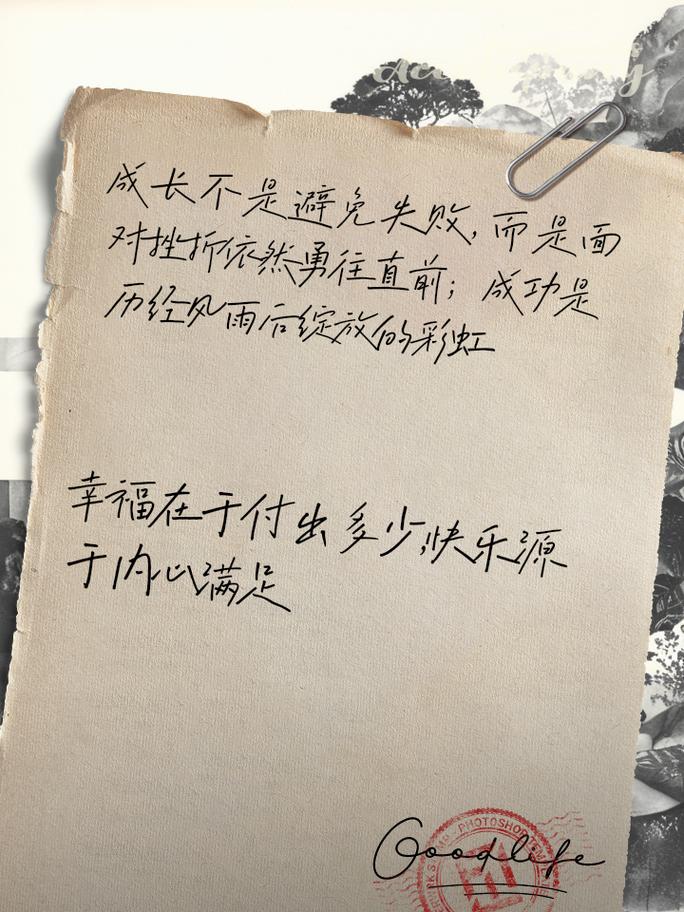 成长不是避免失败,而是面
对挫折依然勇往直前;成功是
历经风雨后绽放的彩虹
幸福在于付出多少,快乐源
于内心满足
PHOTOSHOP
Goodlife